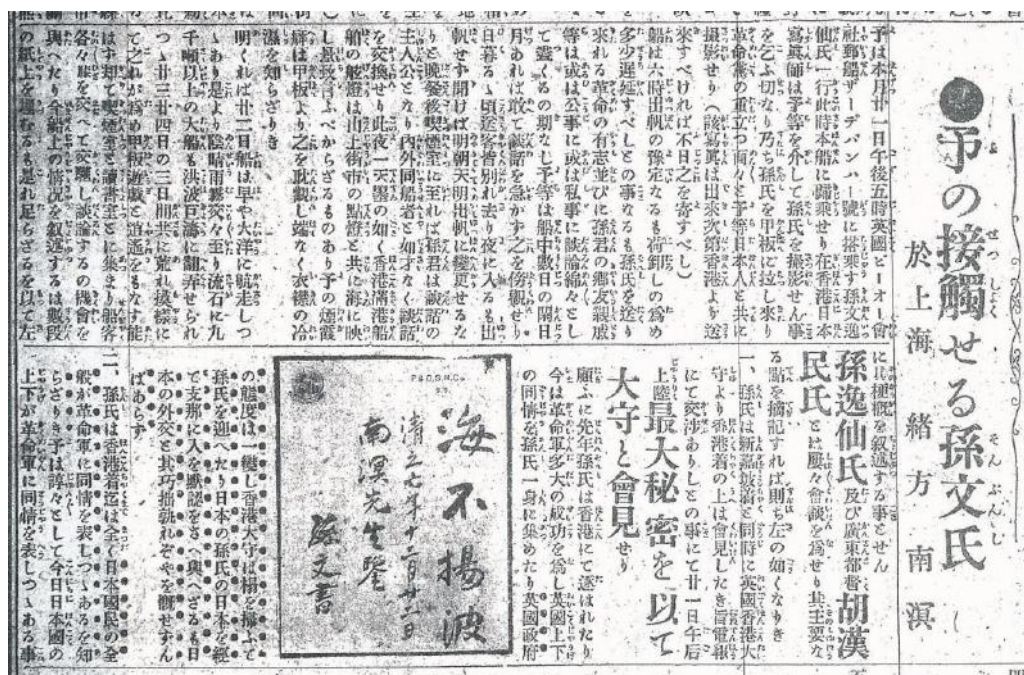 ●予の接觸せる孫文氏
於上海 緒方南溟
予は本月廿一日午後五時英國ピーオー會
社郵船デーバンハー號に搭乘す孫文逸
仙氏一行此時本船に歸乘せり在香港日本
寫眞師は予等を外して孫氏を撮影せん事
を乞ふ切なり乃ち孫氏を甲板に拉し來り
革命黨の重立つ面々と予等日本人と共に
撮影せり(該寫眞は出來次第香港より送
來すべければ不日之を寄すべし)
船は六時出帆の豫定なるも荷卸しの爲め
多少遲延すべしとの事なるも孫氏を送り
來れる革命の有志並びに孫君の鄕友親戚
等は或は公事に或は私事に談論綿々とし
て盡くるの期なし予等は船中數日の閑日
月あれば敢て談話を急がず之を傍觀せり
日暮るゝ頃送客皆別れ去り夜に入るも出
帆せず聞けば明朝天明出帆に變更せるな
りと晩餐後喫煙室に至れば孫君は談話の
主人公となり內外同船者と如才なく談話
を交換せり此夜一天墨の如く香港滿港船
舶の舷燈は山上街市の點燈と共に海に映
じ景致言ふべからざるものあり予の煙霞
癖は甲板より之を耽觀し端なく衣襟の冷
濕を知らざりき
明くれば廿二日船は早や大洋に航走しつ
ゝあり是より陰晴雨霧交々至り流石に九
千噸以上の大船も洪波巨濤に翻弄せられ
つゝ廿三廿四日の三日間共に荒れ模樣に
て之れが爲め甲板遊戲と逍遙をもなす能
はず却て喫煙室と讀書室とに集まり船客
各々膝を交へて交驩し談論するの機會を
與へたり今船上の情況を叙述するは數段
の紙上を塡むるも是れ足らざるを以て左
に其梗槪を叙述する事とせん
孫逸仙氏及び廣東都督胡漢
民氏とは屢々會談を爲せり其主要な
る點を摘記すれば則ち左の如くなりき
一、孫氏は新嘉坡着と同時に英國香港大
守より香港着の上は會見したき旨電報
にて交涉ありしとの事にて廿一日午后
上陸最大秘密を以て
大守と會見せり
顧ふに先年孫氏は香港にて逐はれたり
今は革命軍多大の成功を爲し英國上下
の同情を孫氏一身に集めたり英國政府
P.& O. S. N. Co.
海不揚波
清之七年十二月廿二日
南溟先生鑒
孫文書
の態度は一變し香港大守は榻を掃ふて
孫氏を迎へたり日本の孫氏の日本を經
て支那に入るを默認をさへ與へざるも日
本の外交と其巧拙孰れぞやを慨せずん
ばあらず
二、孫氏は香港着迄は全く日本國民の全
般が革命軍に同情を表しつゝあるを知
らざりき予は諄々として今日日本國の
上下が革命軍に同情を表しつゝある事